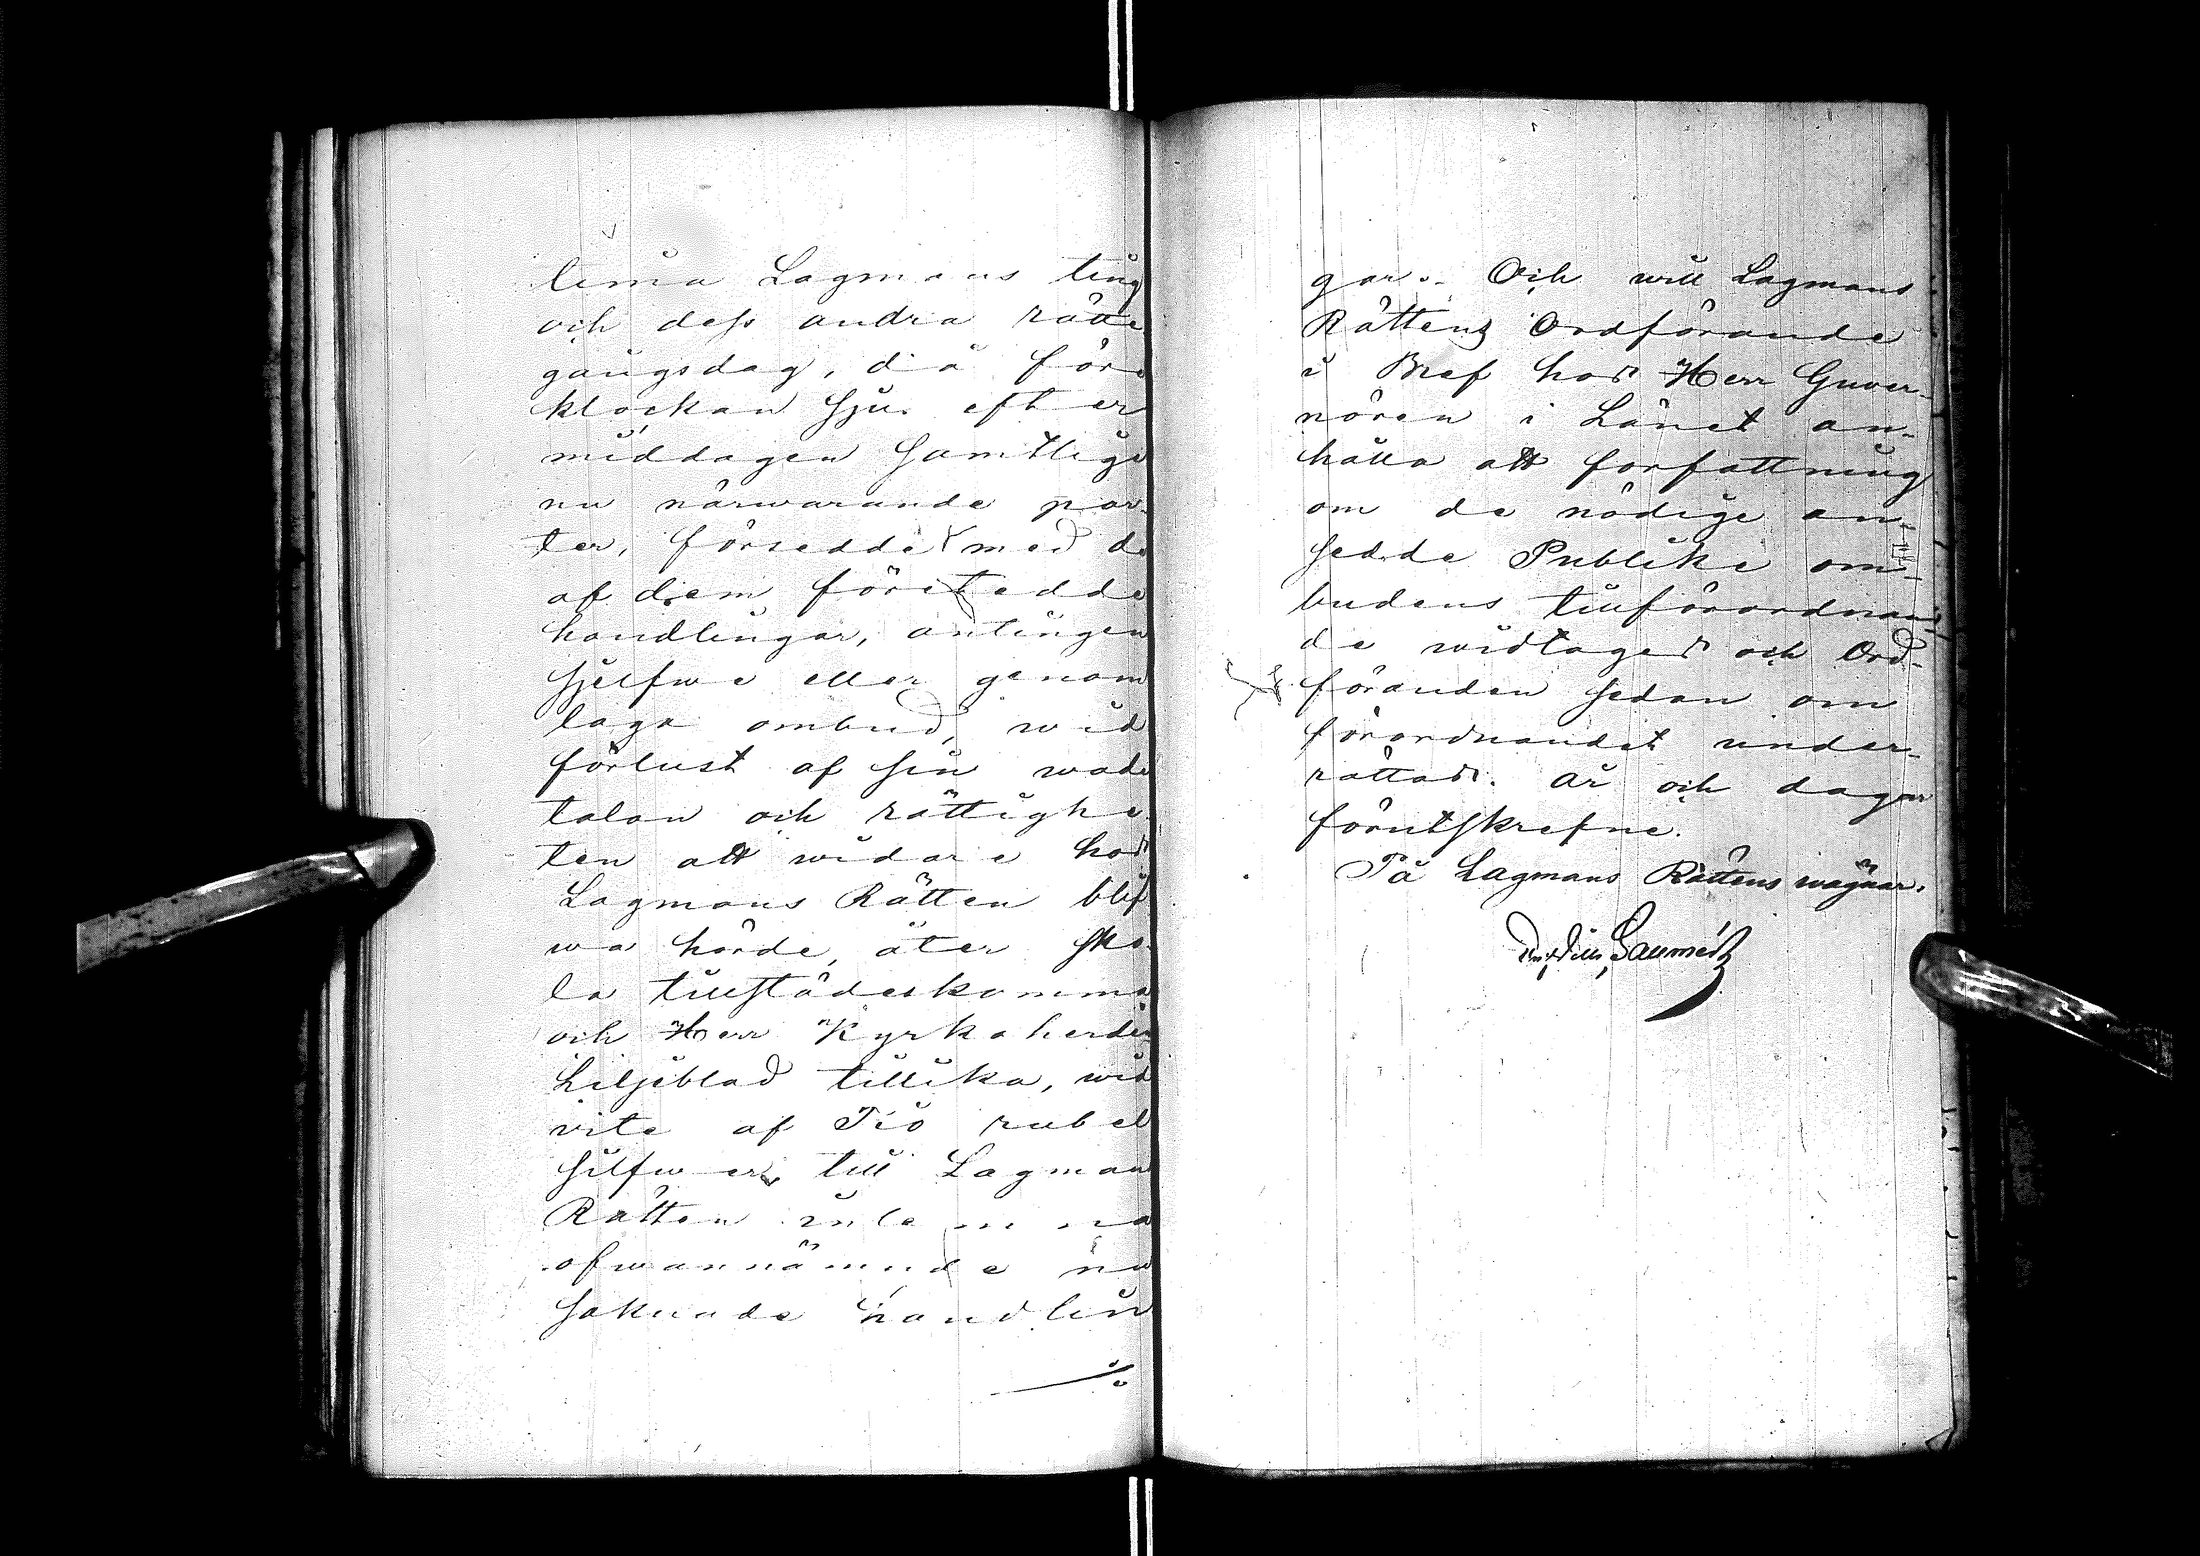 lima Lagmans ting
och dess andra rätte
gångsdag, då före
klockan sju efter
middagen samtlige
nu närwarande par-
ter, försedde med de
af dem företedde
handlingar, antingen
sjelfwe eller genom
laga ombud, wid
förlust af sin wade
talan och rättighe
ten att widare hos
Lagmans Rätten blif
wa hörde, åter sko-
la tillstädeskomma
och Herr Kyrkoherden
Liljeblad tillika, wid
vite af Tio rubel
silfwer, till Lagmans
Rätten inlemna
ofwannämnde nu
saknade handlin
gar. Och will Lagmans
Rättens Ordförande
i Bref hos Herr Guver-
nören i Länet an-
hålla att författning
om de nödige an-
sedde Publike om-
budens tillförordnan-
de widtages och Ord-
föranden sedan om
förordnandet under-
rättas. År och dagar
förutskrefne.
På Lagmans Rättens wägnar.